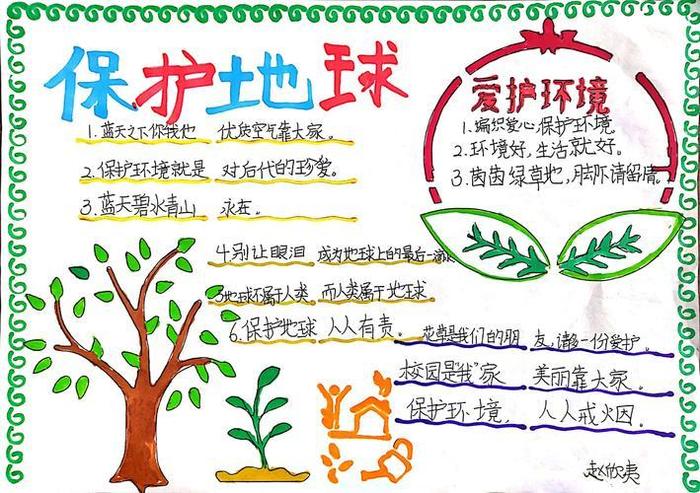 保护地球
1.蓝天之下你我也 优质空气靠大家。
2.保护环境就是 对后代的珍爱。
3.蓝天碧水青山 永在。
4.别让眼泪 成为地球上的最后一滴
5.地球不属于人类 而人类属于地球
6.保护地球 人人有责。
爱护环境
1.编织爱心,保护环境。
2.环境好,生活就好。
3.茵茵绿草地,脚下请留情。
花草是我们的朋 友,请多一份爱护。
校园是我"家 美丽靠大家。
保护环境, 人人戒火因。
赵欣